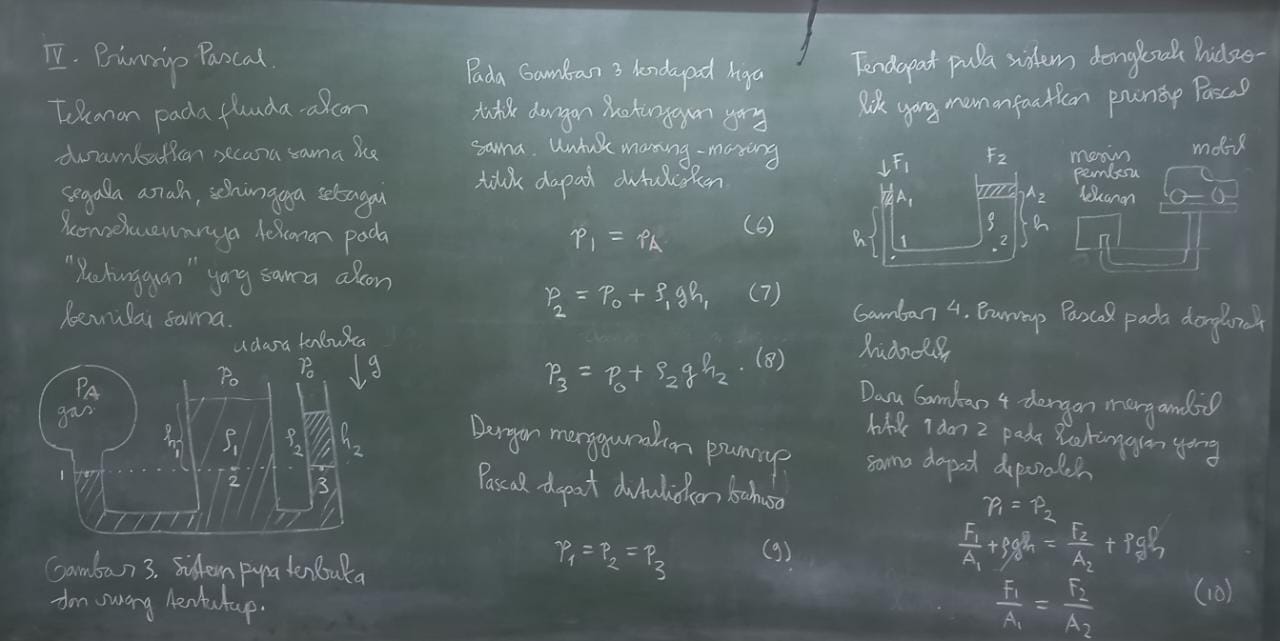 IV. Prinsip Pascal.
Tekanan pada fluida akan
dirambatkan secara sama ke
segala arah, sehingga sebagai
konsekuensinya tekanan pada
"ketinggian" yang sama akan
bernilai sama.
udara terbuka
P_A
gas
p_0
p_0
↓ g
h_1
ρ_1
ρ_2
h_2
1
2
3
Gambar 3. Sistem pipa terbuka
dan ruang tertutup.
Pada Gambar 3 terdapat tiga
titik dengan ketinggian yang
sama. Untuk masing-masing
titik dapat dituliskan
p_1 = p_A (6)
p_2 = p_0 + ρ_1 g h_1 (7)
p_3 = p_0 + ρ_2 g h_2. (8)
Dengan menggunakan prinsip
Pascal dapat dituliskan bahwa
p_1 = p_2 = p_3 (9)
Terdapat pula sistem dongkrak hidro-
lik yang memanfaatkan prinsip Pascal
↓ F_1
F_2
A_1
A_2
h
ρ
h
1
2
mesin
pemberi
tekanan
mobil
Gambar 4. Prinsip Pascal pada dongkrak
hidrolik
Dari Gambar 4 dengan mengambil
titik 1 dan 2 pada ketinggian yang
sama dapat diperoleh
p_1 = p_2
F_1/A_1 + ρgh = F_2/A_2 + ρgh
F_1/A_1 = F_2/A_2 (10)